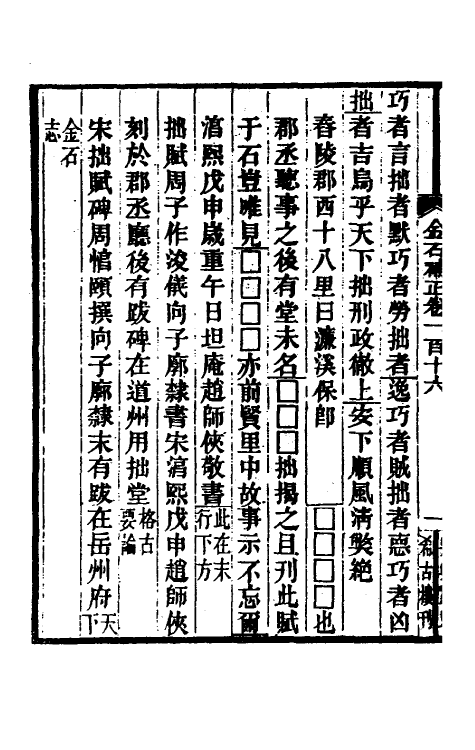 巧者言拙者默巧者勞拙者逸巧者賊拙者德巧者凶
拙者吉烏乎天下拙刑政徹上安下順風淸獘絶
舂陵郡西十八里曰濂溪保卽□□□□也
郡丞聽事之後有堂未名□□□拙揭之且刊此賦
于石豈唯見□□□□亦前賢里中故事示不忘爾
湻熙戊申歲重午日坦庵趙師俠敬書此在末行下方
拙賦周子作浚儀向子廓隸書宋湻熙戊申趙師俠
刻於郡丞廳後有跋碑在道州用拙堂格古要論
宋拙賦碑周惇頤撰向子廓隸末有跋在岳州府天下
金石志
金石補正卷一百十六
一
希古樓刊